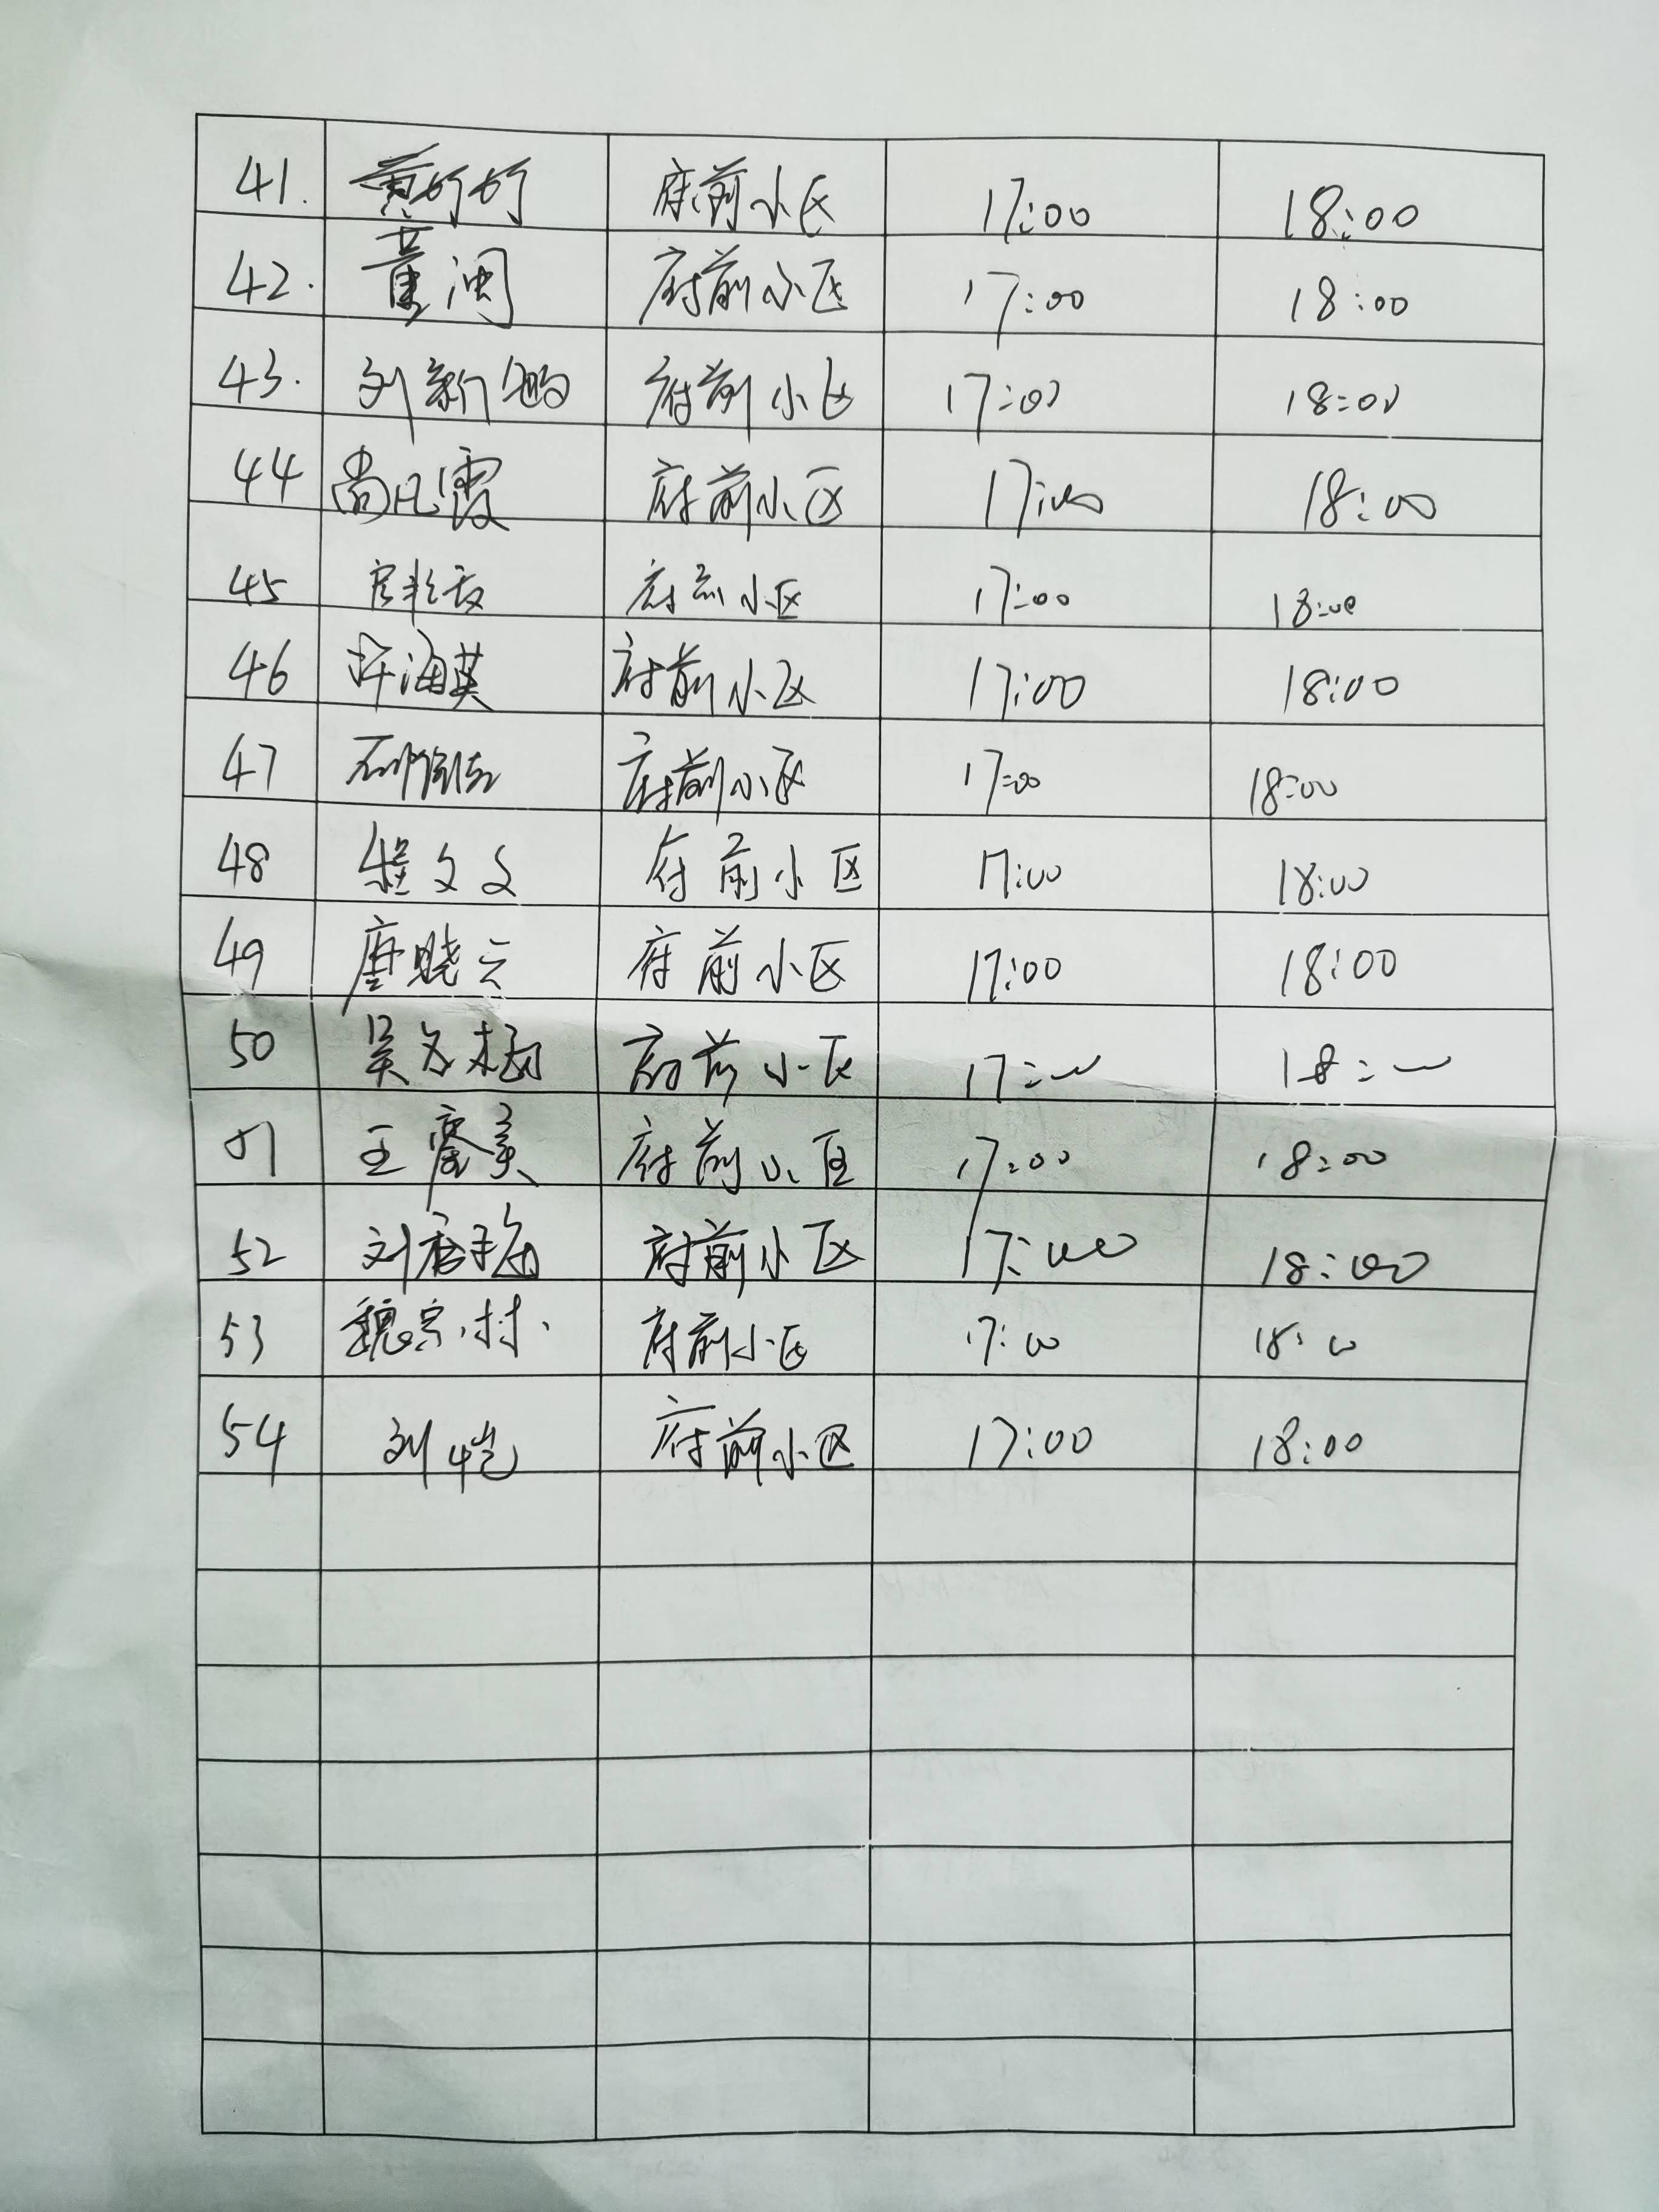 41. 黄竹竹 府前小区 17:00 18:00
42. 董闽 府前小区 17:00 18:00
43. 刘新 府前小区 17:00 18:00
44 尚凡霞 府前小区 17:00 18:00
45 府前小区 17:00 18:00
46 海英 府前小区 17:00 18:00
47 府前小区 17:00 18:00
48 程文文 府前小区 17:00 18:00
49 唐晓云 府前小区 17:00 18:00
50 吴 府前小区 17:00 18:00
51 王 美 府前小区 17:00 18:00
52 刘 府前小区 17:00 18:00
53 魏 村 府前小区 17:00 18:00
54 刘恺 府前小区 17:00 18:00